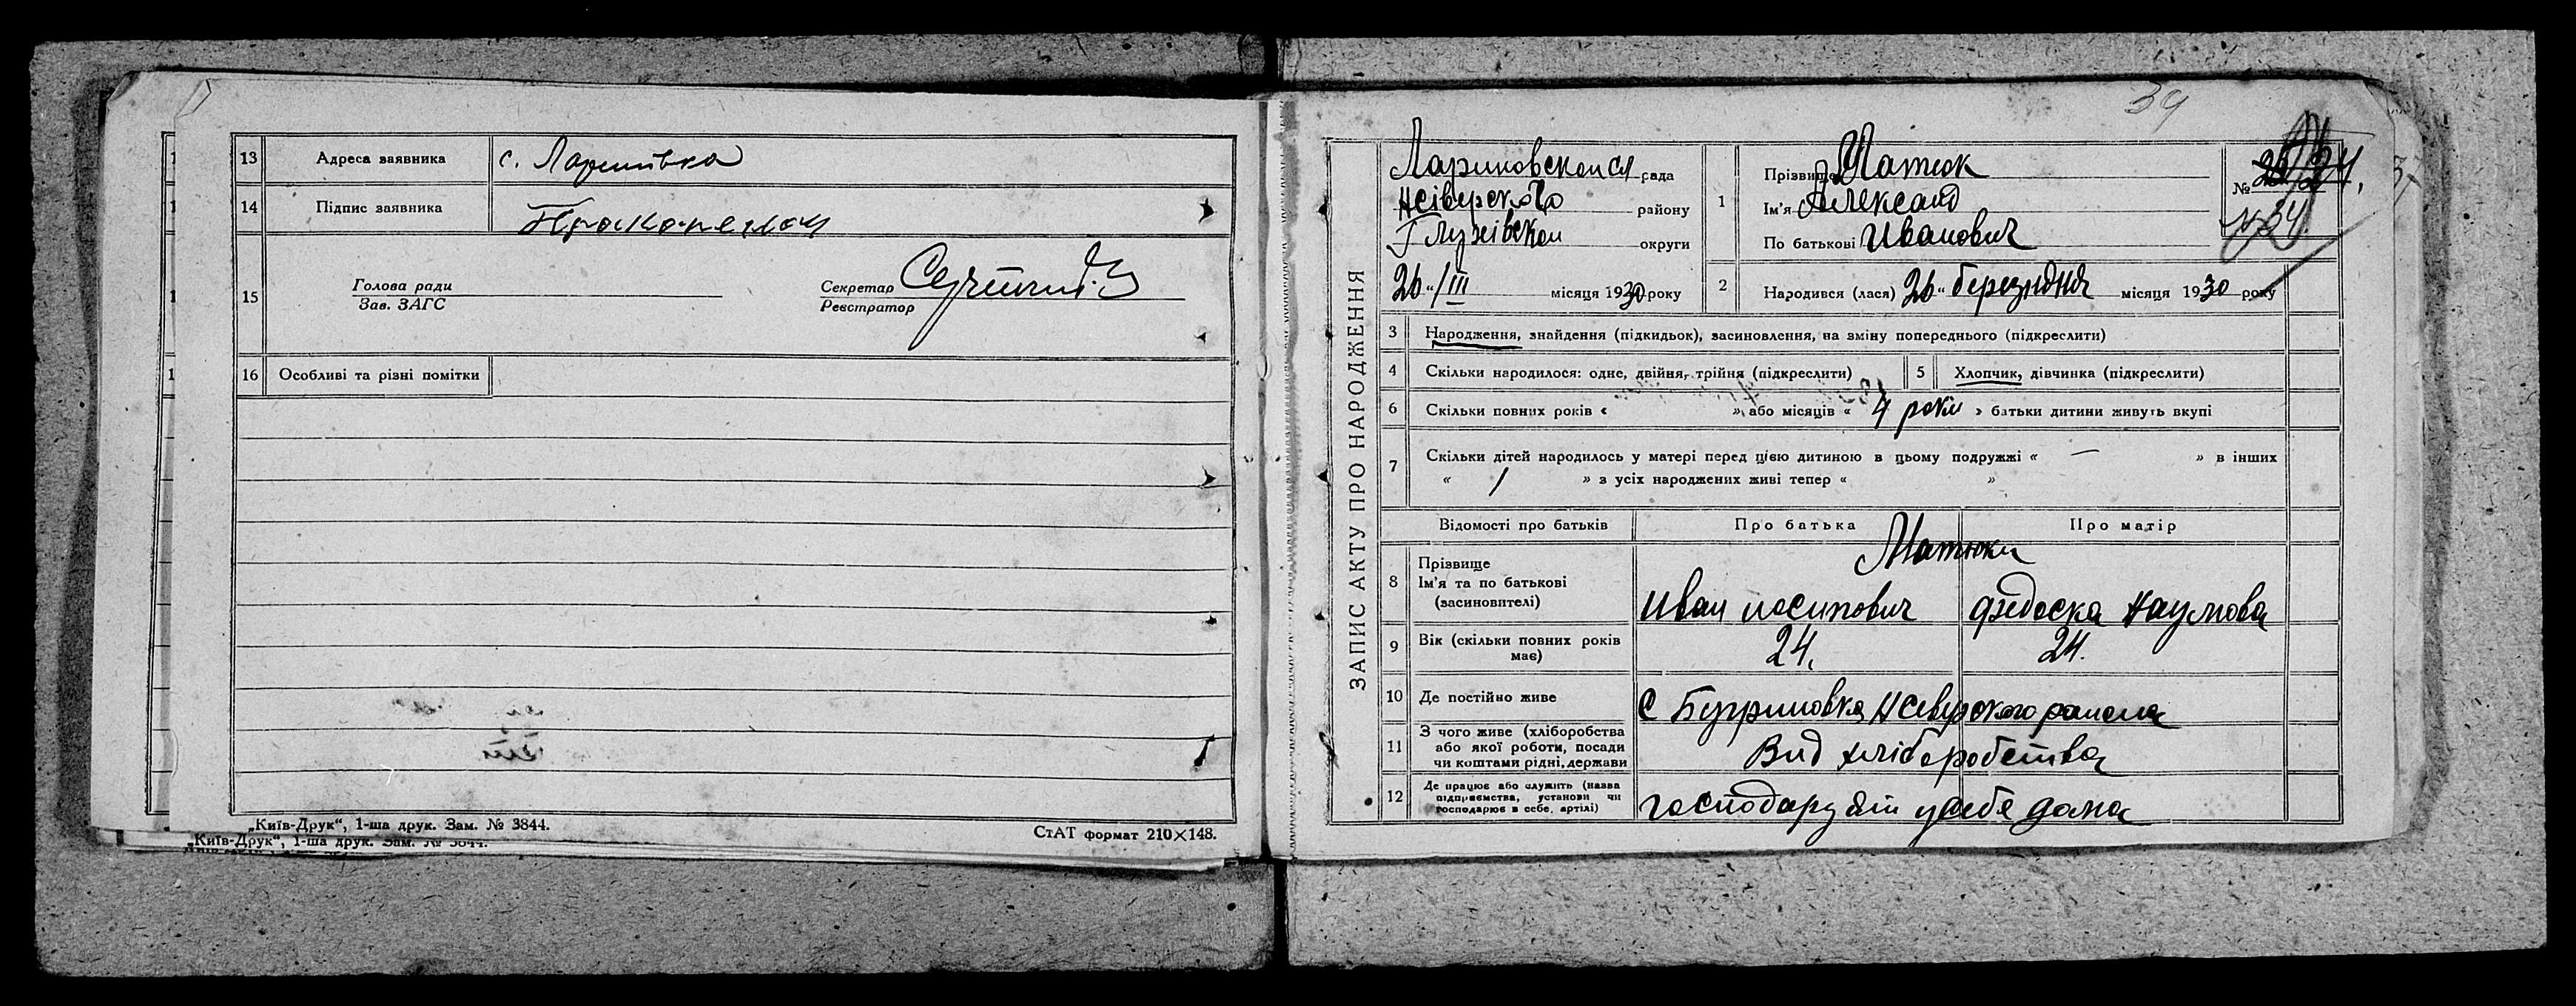 13 Адреса заявника с. Ларинівка
14 Підпис заявника
15 Голова ради
Зав. ЗАГС
Секретар
Реєстратор
16 Особливі та різні помітки
„Київ-Друк“, 1-ша друк. Зам. № 3844.
СтАТ формат 210×148.
„Київ-Друк“, 1-ша друк. Зам. № 3844.
ЗАПИС АКТУ ПРО НАРОДЖЕННЯ
рада
Нсіверского району
Глухівскои округи
26 "/III місяця 1930 року
1 Прізвище Матюк
Ім'я Александ
По батькові Иванович
№
№34
2 Народився (лася) 26 " березндня місяця 1930 року
3 Народження, знайдення (підкидьок), засиновлення, на зміну попереднього (підкреслити)
4 Скільки народилося: одне, двійня, трійня (підкреслити)
5 Хлопчик, дівчинка (підкреслити)
6 Скільки повних років « », або місяців « 4 роки » батьки дитини живуть вкупі
7 Скільки дітей народилось у матері перед цією дитиною в цьому подружжі « — » в інших
« 1 » з усіх народжених живі тепер « »
Відомості про батьків Про батька Про матір
Матюки
8 Прізвище
Ім'я та по батькові
(засиновителі)
Иван иосипович Федоска Наумова
9 Вік (скільки повних років має) 24. 24.
10 Де постійно живе С Бугриновка Нсеверского раиона
11 З чого живе (хліборобства або якої роботи, посади чи коштами рідні, держави
Вид хліборобства
12 Де працює або служить (назва підприємства, установи чи господарює в себе, артілі)
господарует усебя дома